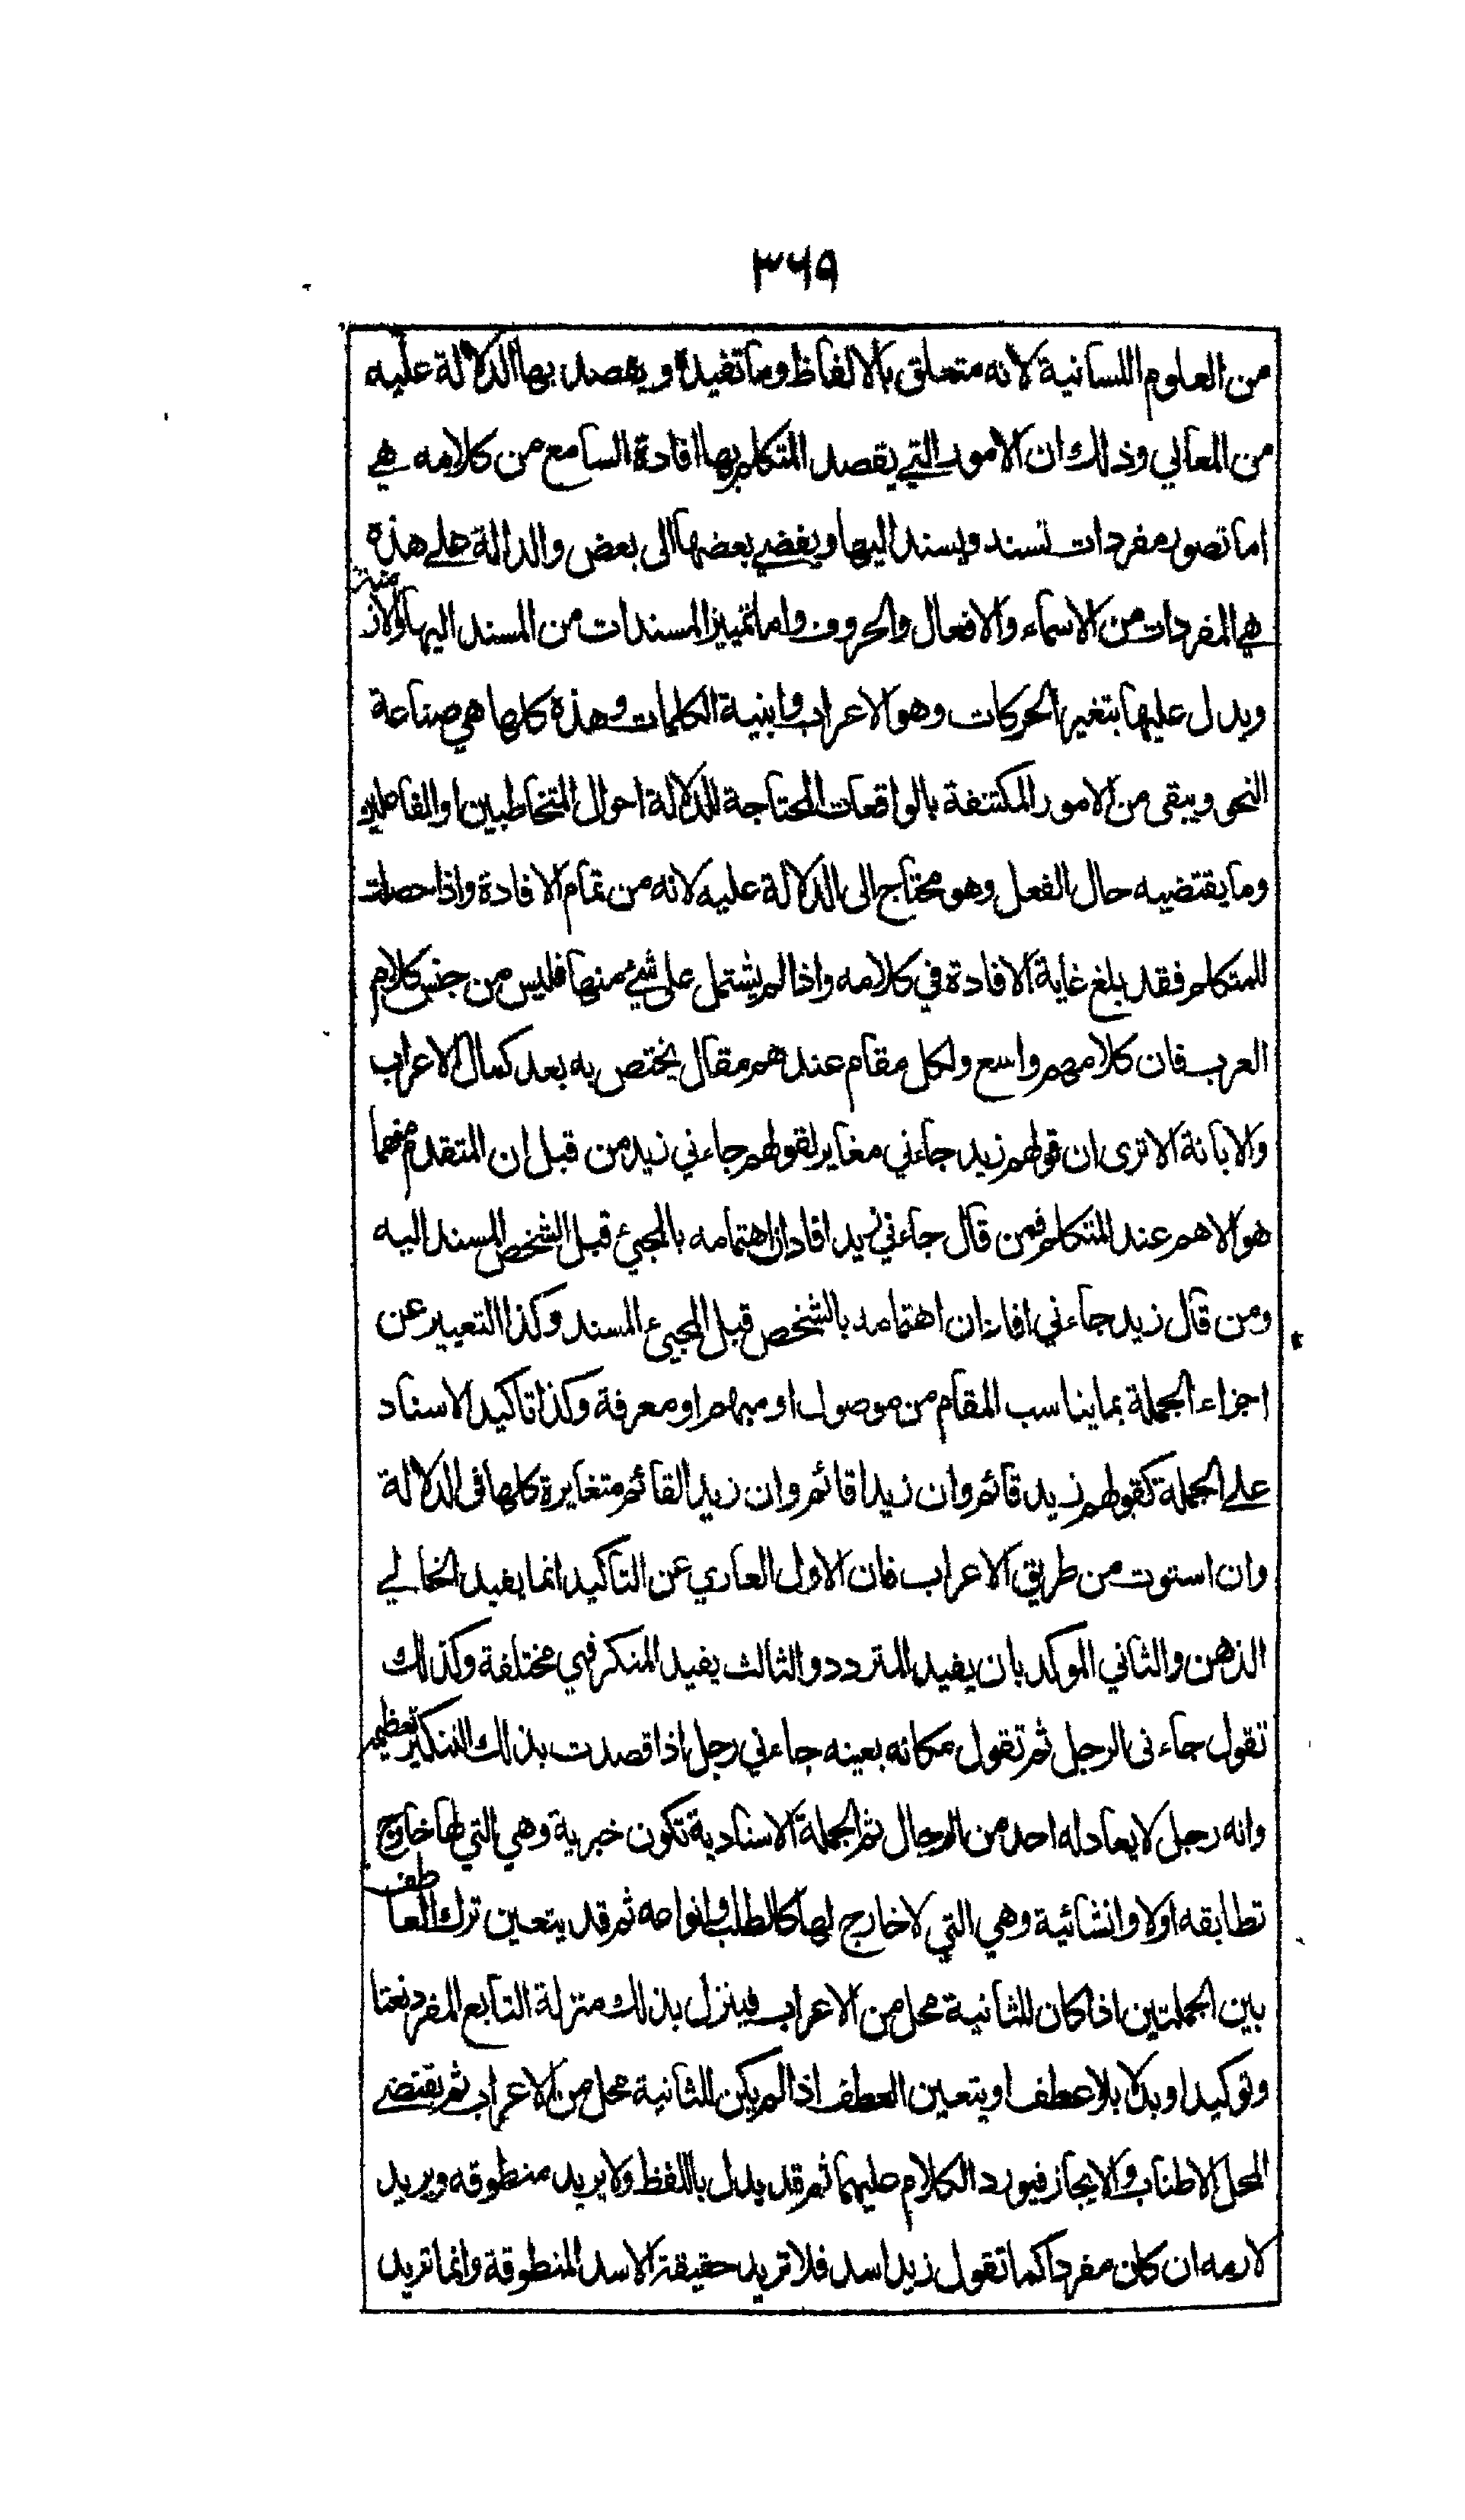 ٣٦٩
من العلوم اللسانية لانه متعلق بالالفاظ وما تفيده ويقصد بها الدلالة عليه
من المعاني وذلك ان الامور التي يقصد المتكلم بها افادة السامع من كلامه هي
اما تصور مفردات تسند ويسند اليها ويفضي بعضها الى بعض والدالة على هذه
هي المفردات من الاسماء والافعال والحروف واما تمييز المسندات من المسند اليها والازمنة
ويدل عليها بتغير الحركات وهو الاعراب وابنية الكلمات وهذه كلها هي صناعة
النحو ويبقى من الامور المكتنفة بالواقعات المحتاجة للدلالة احوال المتخاطبين او الفاعلين
وما يقتضيه حال الفعل وهو محتاج الى الدلالة عليه لانه من تمام الافادة واذا حصلت
للمتكلم فقد بلغ غاية الافادة في كلامه واذا لم يشتمل على شئ منها فليس من جنس كلام
العرب فان كلامهم واسع ولكل مقام عندهم مقال يختص به بعد كمال الاعراب
والابانة الا ترى ان قولهم زيد جاءني مغاير لقولهم جاءني زيد من قبل ان المتقدم منهما
هو الاهم عند المتكلم فمن قال جاءني زيد افاد ان اهتمامه بالمجئ قبل الشخص المسند اليه
ومن قال زيد جاءني افاد ان اهتمامه بالشخص قبل المجيء المسند وكذا التعبير عن
اجزاء الجملة بما يناسب المقام من موصول او مبهم او معرفة وكذا تاكيد الاسناد
على الجملة كقولهم زيد قائم وان زيدا قائم وان زيد القائم متغايرة كلها في الدلالة
وان استوت من طريق الاعراب فان الاول العاري عن التاكيد انما يفيد الخالي
الذهن والثاني الموكد بان يفيد المتردد والثالث يفيد المنكر فهي مختلفة وكذلك
تقول جاءنى الرجل ثم تقول مكانه بعينه جاءني رجل اذا قصدت بذلك التنكير تعظيمه
وانه رجل لا يعادله احد من الرجال ثم الجملة الاسنادية تكون خبرية وهي التي لها خارج
تطابقه اولا وانشائية وهي التي لا خارج لها كالطلب وانواعه ثم قد يتعين ترك العاطف
بين الجملتين اذا كان للثانية محل من الاعراب فينزل بذلك منزلة التابع المفرد نعتا
وتوكيدا وبدلا بلا عطف او يتعين العطف اذا لم يكن للثانية محل من الاعراب ثم يقتضي
المحل الاطناب والايجاز فيورد الكلام عليهما ثم قد يدل باللفظ ولا يريد منطوقه ويريد
لازمه ان كان مفردا كما تقول زيد اسد فلا تريد حقيقة الاسد المنطوقة وانما تريد